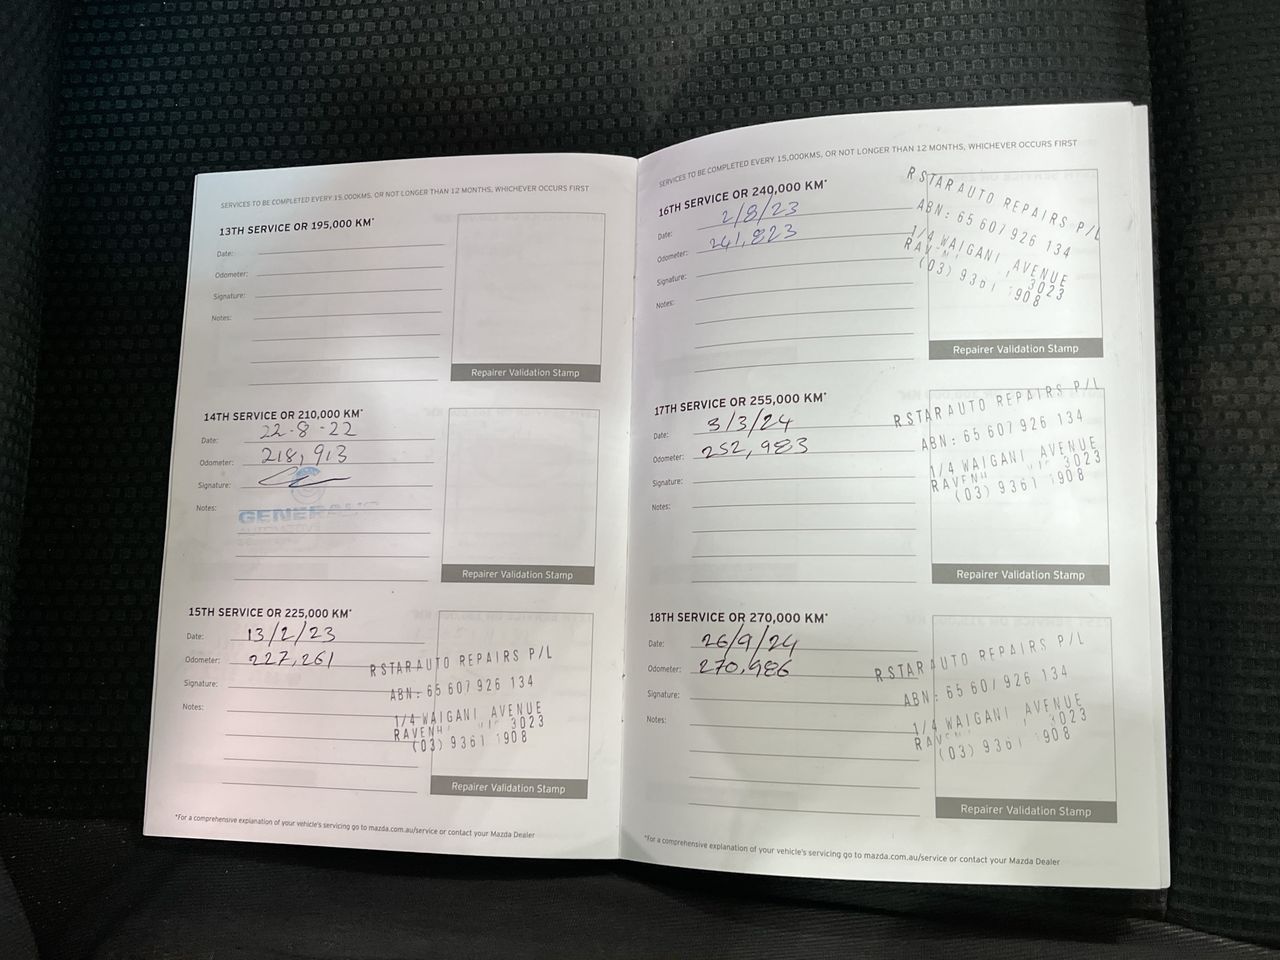 SERVICES TO BE COMPLETED EVERY 15,000KMS, OR NOT LONGER THAN 12 MONTHS, WHICHEVER OCCURS FIRST
13TH SERVICE OR 195,000 KM*
Date:
Odometer:
Signature:
Notes:
Repairer Validation Stamp
14TH SERVICE OR 210,000 KM*
Date: 22-8-22
Odometer: 218,913
Signature:
Notes:
Repairer Validation Stamp
15TH SERVICE OR 225,000 KM*
Date: 13/2/23
Odometer: 227,261
Signature:
Notes:
RSTARAUTO REPAIRS P/L
ABN: 65 607 926 134
1/4 WAIGANI AVENUE
3023
(03) 9361 1908
Repairer Validation Stamp
*For a comprehensive explanation of your vehicle's servicing go to mazda.com.au/service or contact your Mazda Dealer
SERVICES TO BE COMPLETED EVERY 15,000KMS, OR NOT LONGER THAN 12 MONTHS, WHICHEVER OCCURS FIRST
16TH SERVICE OR 240,000 KM*
Date: 2/8/23
Odometer: 241,823
Signature:
Notes:
RSTARAUTO REPAIRS P/L
ABN: 65 607 926 134
1/4 WAIGANI AVENUE
3023
(03) 9361 1908
Repairer Validation Stamp
17TH SERVICE OR 255,000 KM*
Date: /3/24
Odometer: 252,983
Signature:
Notes:
RSTARAUTO REPAIRS P/L
ABN: 65 607 926 134
1/4 WAIGANI AVENUE
3023
(03) 9361 1908
Repairer Validation Stamp
18TH SERVICE OR 270,000 KM*
Date: 26/9/24
Odometer: 270,986
Signature:
Notes:
RSTARAUTO REPAIRS P/L
ABN: 65 607 926 134
1/4 WAIGANI AVENUE
3023
(03) 9361 1908
Repairer Validation Stamp
*For a comprehensive explanation of your vehicle's servicing go to mazda.com.au/service or contact your Mazda Dealer